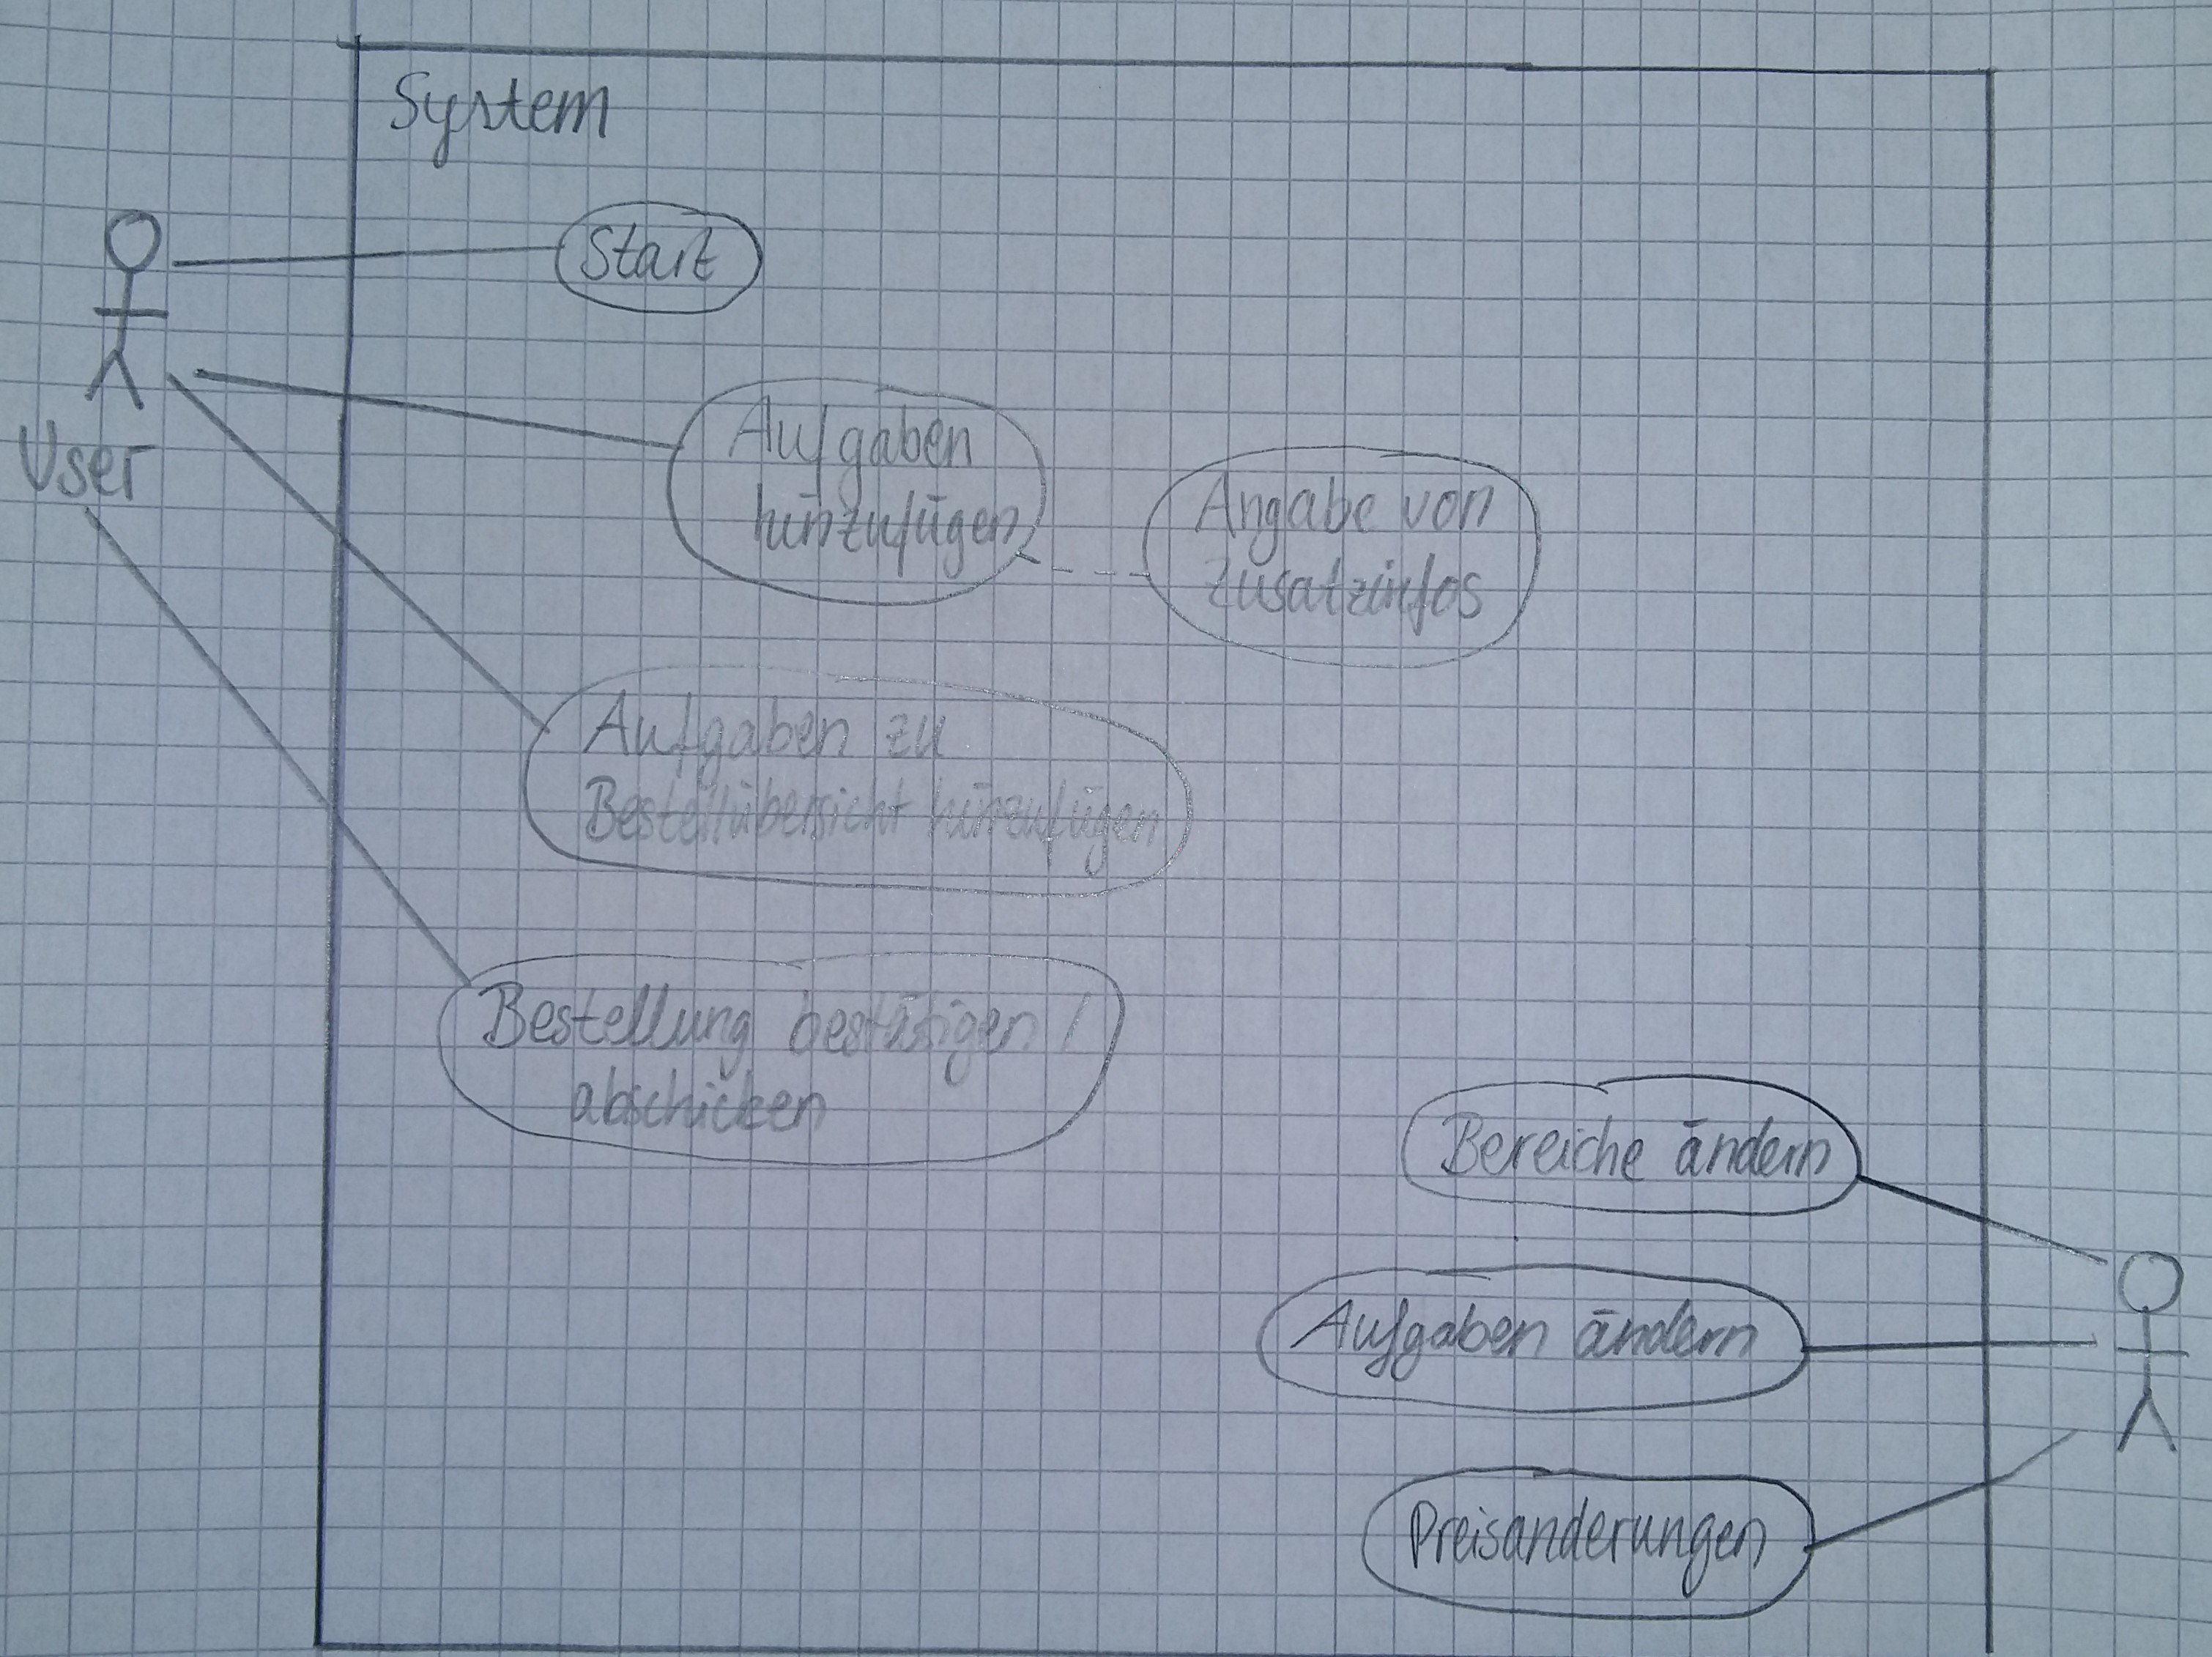 System
Start
User
Aufgaben
hinzufügen
Angabe von
Zusatzinfos
Aufgaben zu
Bestellübersicht hinzufügen
Bestellung bestätigen /
abschicken
Bereiche ändern
Aufgaben ändern
Preisanderungen